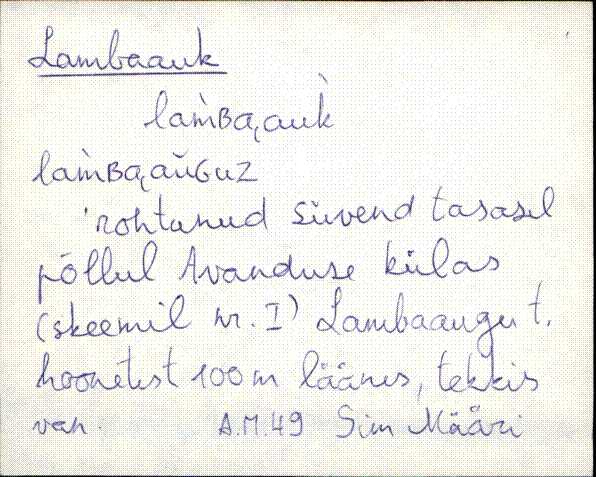 Lambaauk
lam̀ʙa͔auk̀
lam̀ʙa͔aŭɢuz
'rohtunud süvend tasasel
põllul Avanduse külas
(skeemil nr. I) Lambaaugu t.
hoonetest 100 m läänes, tekkis
van. A.M.49 Sim Määri